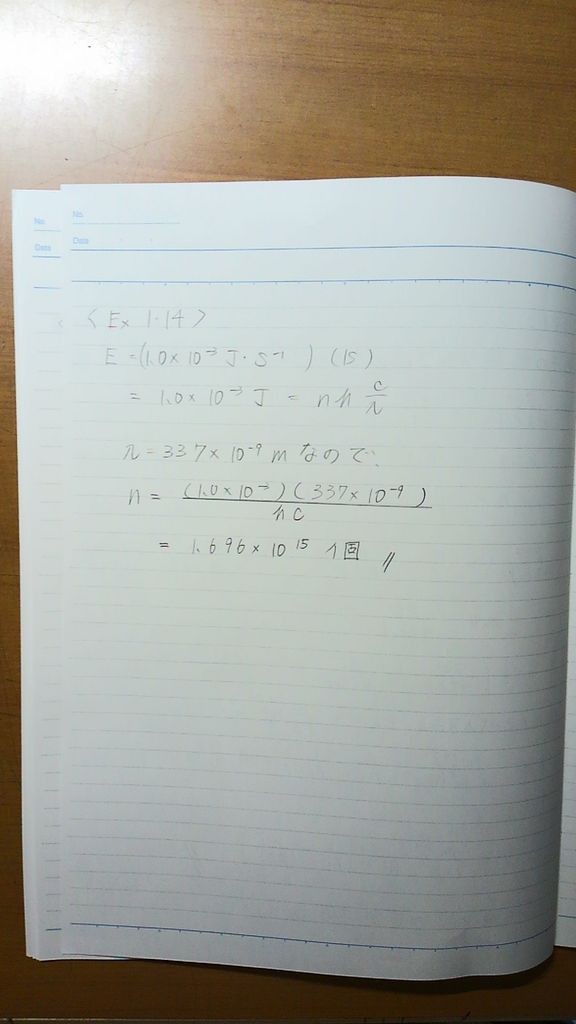 No.
Date
No.
Date
< Ex 1.14 >
E = (1.0 × 10⁻³ J・S⁻¹) (1S)
= 1.0 × 10⁻³ J = nh c/λ
λ = 337 × 10⁻⁹ m なので、
n = (1.0 × 10⁻³)(337 × 10⁻⁹) / hc
= 1.696 × 10¹⁵ 個 //